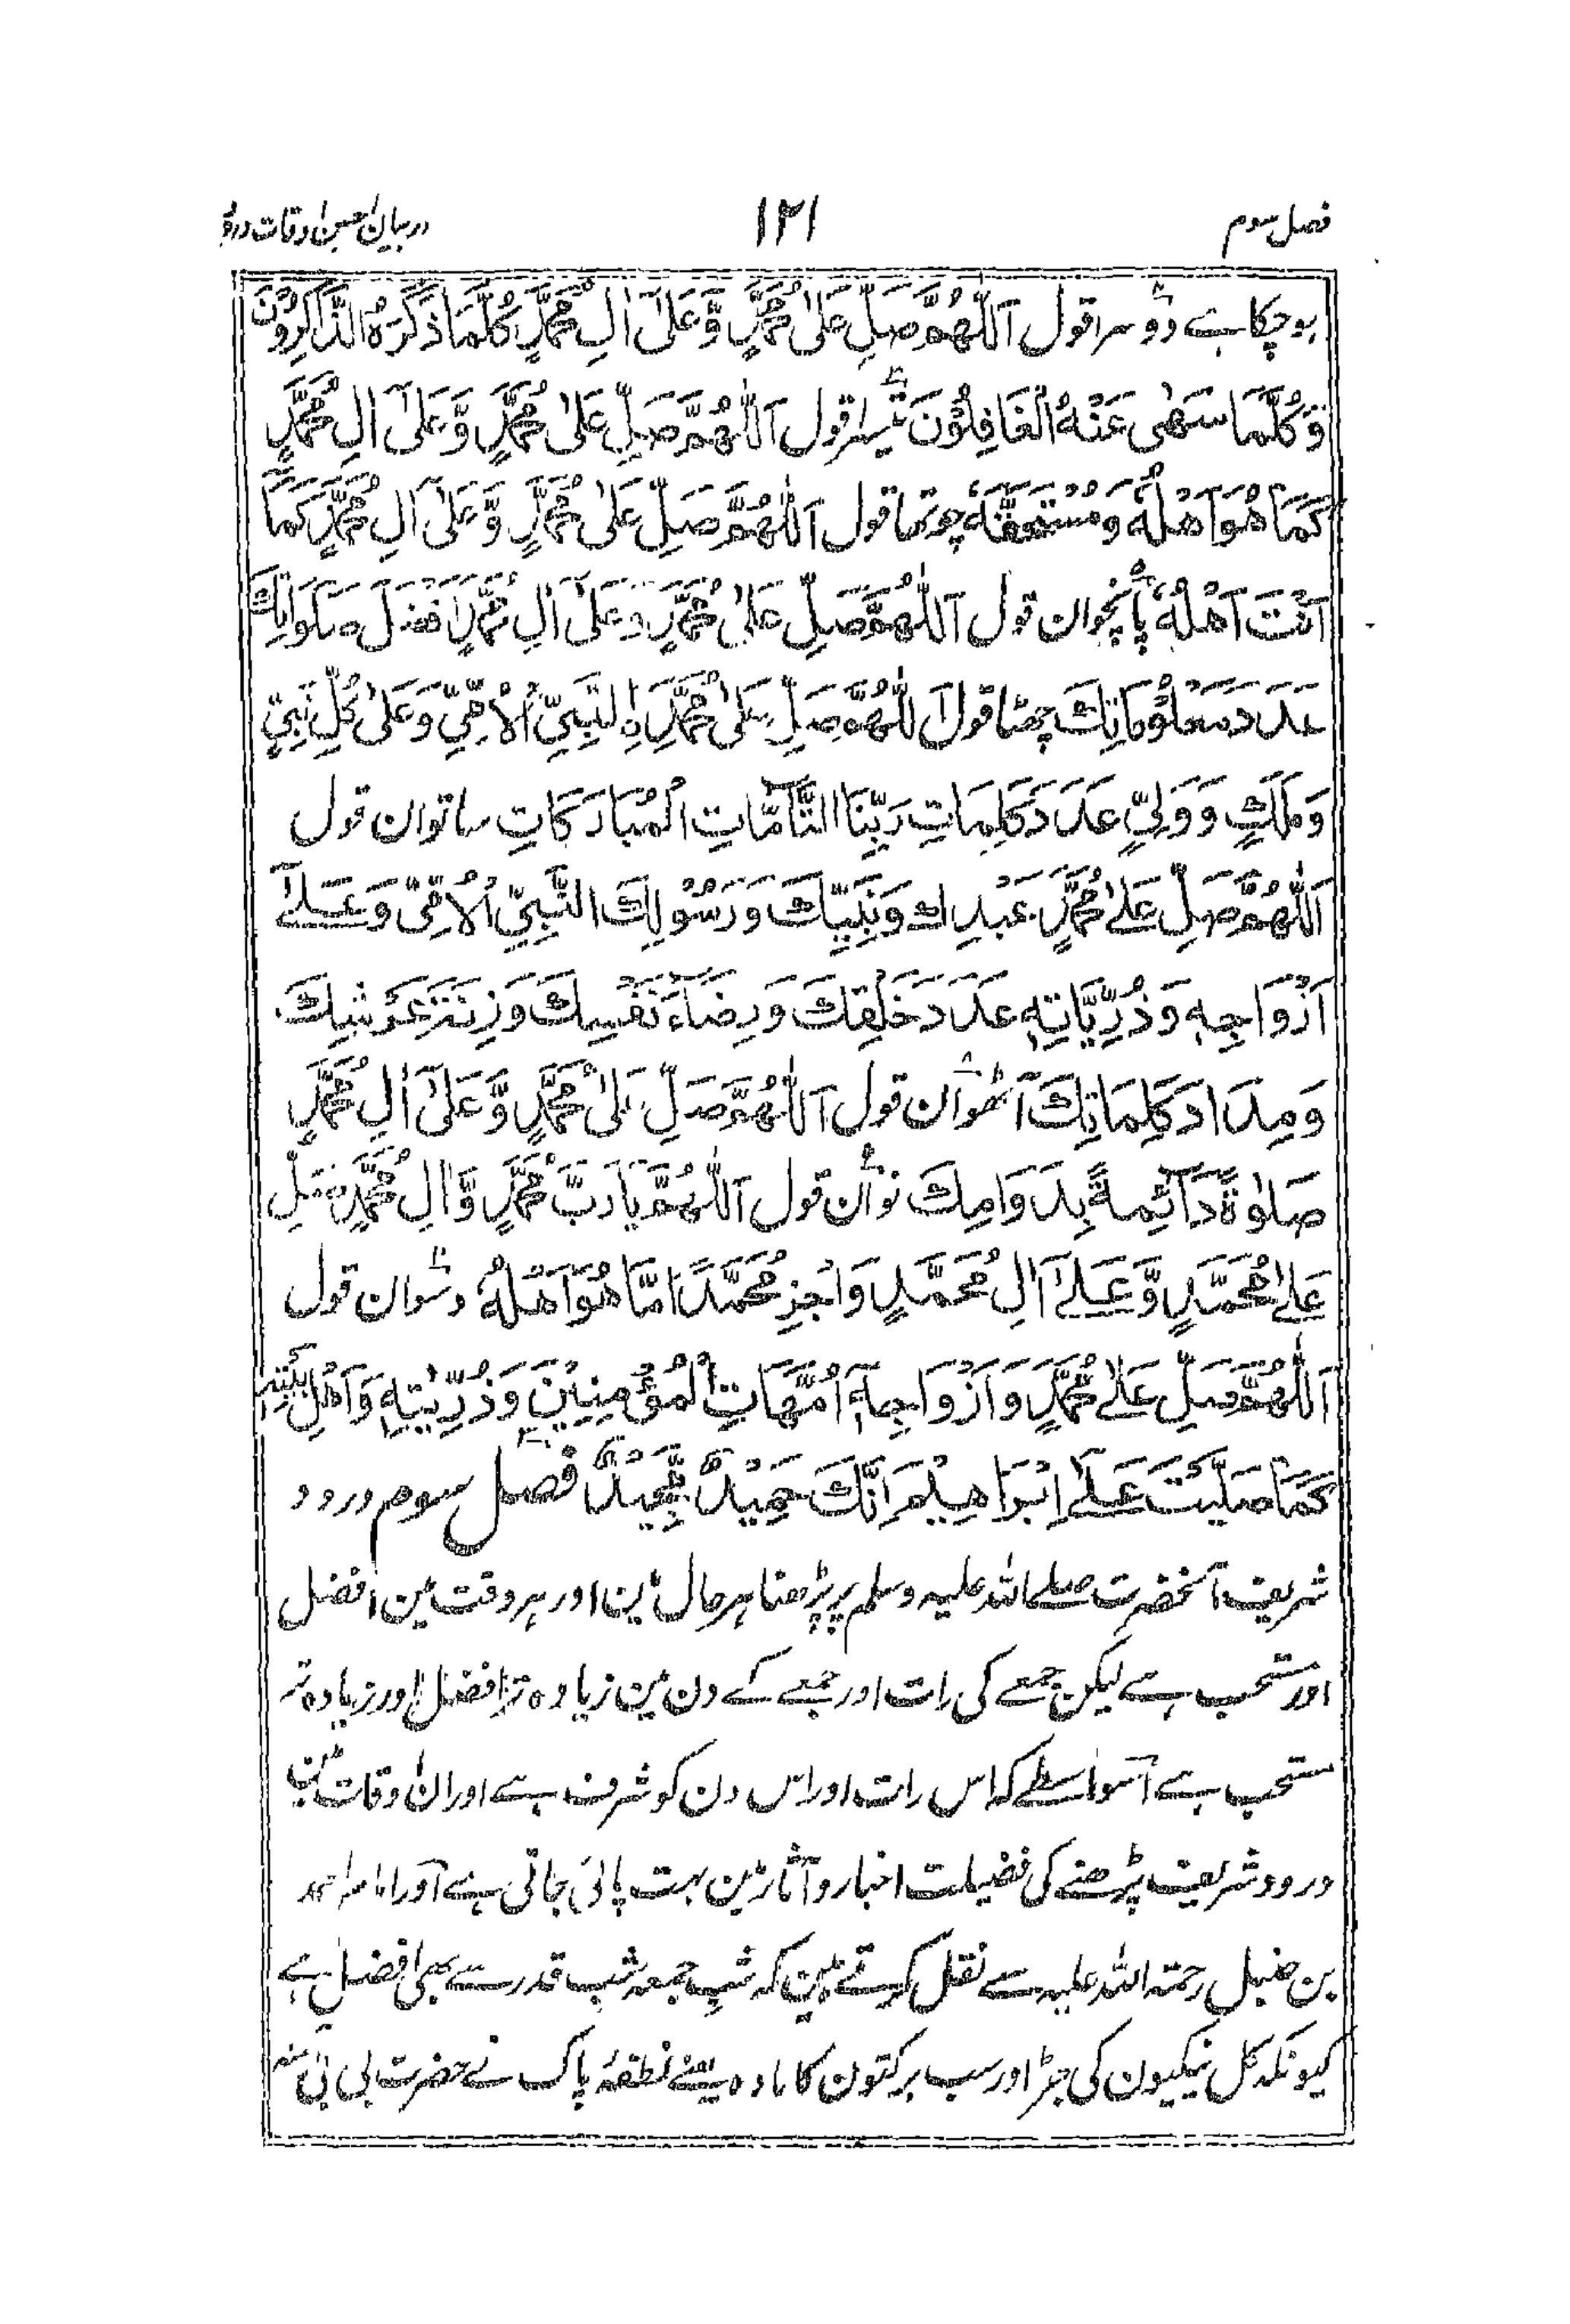 فصل سوم ۱۲۱ در بیان احسن اوقات درود
ہوچکا ہے دوسرا قول اَللّٰهُمَّ صَلِّ عَلٰى مُحَمَّدٍ وَّعَلٰٓى اٰلِ مُحَمَّدٍ كُلَّمَا ذَكَرَهُ الذَّاكِرُوْنَ
وَكُلَّمَا سَهٰى عَنْهُ الْغَافِلُوْنَ تیسرا قول اَللّٰهُمَّ صَلِّ عَلٰى مُحَمَّدٍ وَّعَلٰٓى اٰلِ مُحَمَّدٍ
كَمَا هُوَ اَهْلُهٗ وَمُسْتَحِقُّهٗ چوتھا قول اَللّٰهُمَّ صَلِّ عَلٰى مُحَمَّدٍ وَّعَلٰٓى اٰلِ مُحَمَّدٍ كَمَا
اَنْتَ اَهْلُهٗ پانچوان قول اَللّٰهُمَّ صَلِّ عَلٰى مُحَمَّدٍ وَعَلٰٓى اٰلِ مُحَمَّدٍ اَفْضَلَ صَلَوَاتِكَ
عَدَدَ مَعْلُوْمَاتِكَ چھٹا قول اَللّٰهُمَّ صَلِّ عَلٰى مُحَمَّدِ ۣالنَّبِيِّ الْاُمِّيِّ وَعَلٰى كُلِّ نَبِيٍّ
وَمَلَكٍ وَوَلِيٍّ عَدَدَ كَلِمَاتِ رَبِّنَا التَّآمَّاتِ الْمُبَارَكَاتِ ساتوان قول
اَللّٰهُمَّ صَلِّ عَلٰى مُحَمَّدٍ عَبْدِكَ وَنَبِيِّكَ وَرَسُوْلِكَ النَّبِيِّ الْاُمِّيِّ وَعَلٰٓى
اَزْوَاجِهٖ وَذُرِّيَّاتِهٖ عَدَدَ خَلْقِكَ وَرِضَآءَ نَفْسِكَ وَزِنَةَ عَرْشِكَ
وَمِدَادَ كَلِمَاتِكَ آٹھوان قول اَللّٰهُمَّ صَلِّ عَلٰى مُحَمَّدٍ وَّعَلٰٓى اٰلِ مُحَمَّدٍ
صَلٰوةً دَآئِمَةً بِدَوَامِكَ نوان قول اَللّٰهُمَّ يَا رَبَّ مُحَمَّدٍ وَّاٰلِ مُحَمَّدٍ صَلِّ
عَلٰى مُحَمَّدٍ وَّعَلٰٓى اٰلِ مُحَمَّدٍ وَاجْزِ مُحَمَّدًا مَّا هُوَ اَهْلُهٗ دسوان قول
اَللّٰهُمَّ صَلِّ عَلٰى مُحَمَّدٍ وَاَزْوَاجِهٖٓ اُمَّهَاتِ الْمُؤْمِنِيْنَ وَذُرِّيّٰتِهٖ وَاَهْلِ بَيْتِهٖ
كَمَا صَلَّيْتَ عَلٰٓى اِبْرَاهِيْمَ اِنَّكَ حَمِيْدٌ مَّجِيْدٌ فصل سوم درود
شریف آنحضرت صلے اللہ علیہ وسلم پر پڑھنا ہر حال مین اور ہر وقت مین افضل
اور مستحب ہے لیکن جمعے کی رات اور جمعے کے دن مین زیادہ تر افضل اور زیادہ تر
مستحب ہے اسواسطے کہ اس رات اور اس دن کو شرف ہے اور ان اوقات مین
درود شریف پڑھنے کی فضیلت اخبار و آثار مین بہت پائی جاتی ہے اور امام احمد
بن حنبل رحمتہ اللہ علیہ سے نقل کرتے ہین کہ شب جمعہ شب قدر سے بھی افضل ہے
کیونکہ کل نیکیون کی جڑ اور سب برکتون کا مادہ یعنے نطفۂ پاک نے حضرت بی بی آمنہ